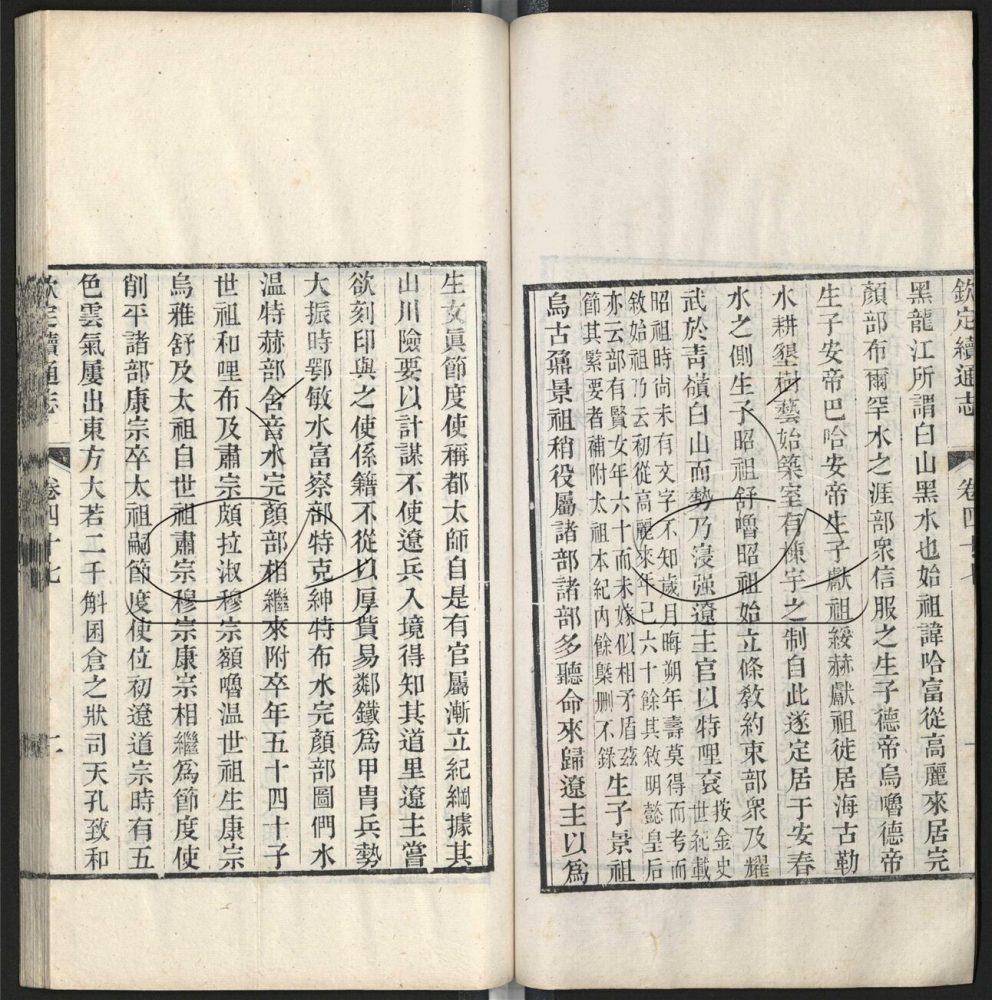 欽定續通志 卷四十七
黑龍江所謂白山黑水也始祖諱哈富從高麗來居完
顏部布爾罕水之涯部衆信服之生子德帝烏嚕德帝
生子安帝巴哈安帝生子獻祖綏赫獻祖徙居海古勒
水耕墾樹藝始築室有棟宇之制自此遂定居于安春
水之側生子昭祖舒嚕昭祖始立條教約束部衆及耀
武於青嶺白山而勢乃浸强遼主官以特哩衮按金史世紀載
昭祖時尚未有文字不知歲月晦朔年壽莫得而考而
敘始祖乃云初從高麗來年已六十餘其敘明懿皇后
亦云部有賢女年六十而未嫁似相矛盾茲
節其緊要者補附太祖本紀內餘槩刪不錄
生子景祖
烏古鼐景祖稍役屬諸部諸部多聽命來歸遼主以爲
生女眞節度使稱都太師自是有官屬漸立紀綱據其
山川險要以計謀不使遼兵入境得知其道里遼主嘗
欲刻印與之使係籍不從以厚貲易鄰鐵爲甲胄兵勢
大振時鄂敏水富察部特克紳特布水完顏部圖們水
温特赫部舍音水完顏部相繼來附卒年五十四十子
世祖和哩布及肅宗頗拉淑穆宗額嚕温世祖生康宗
烏雅舒及太祖自世祖肅宗穆宗康宗相繼爲節度使
削平諸部康宗卒太祖嗣節度使位初遼道宗時有五
色雲氣屢出東方大若二千斛囷倉之狀司天孔致和
欽定續通志 卷四十七 二